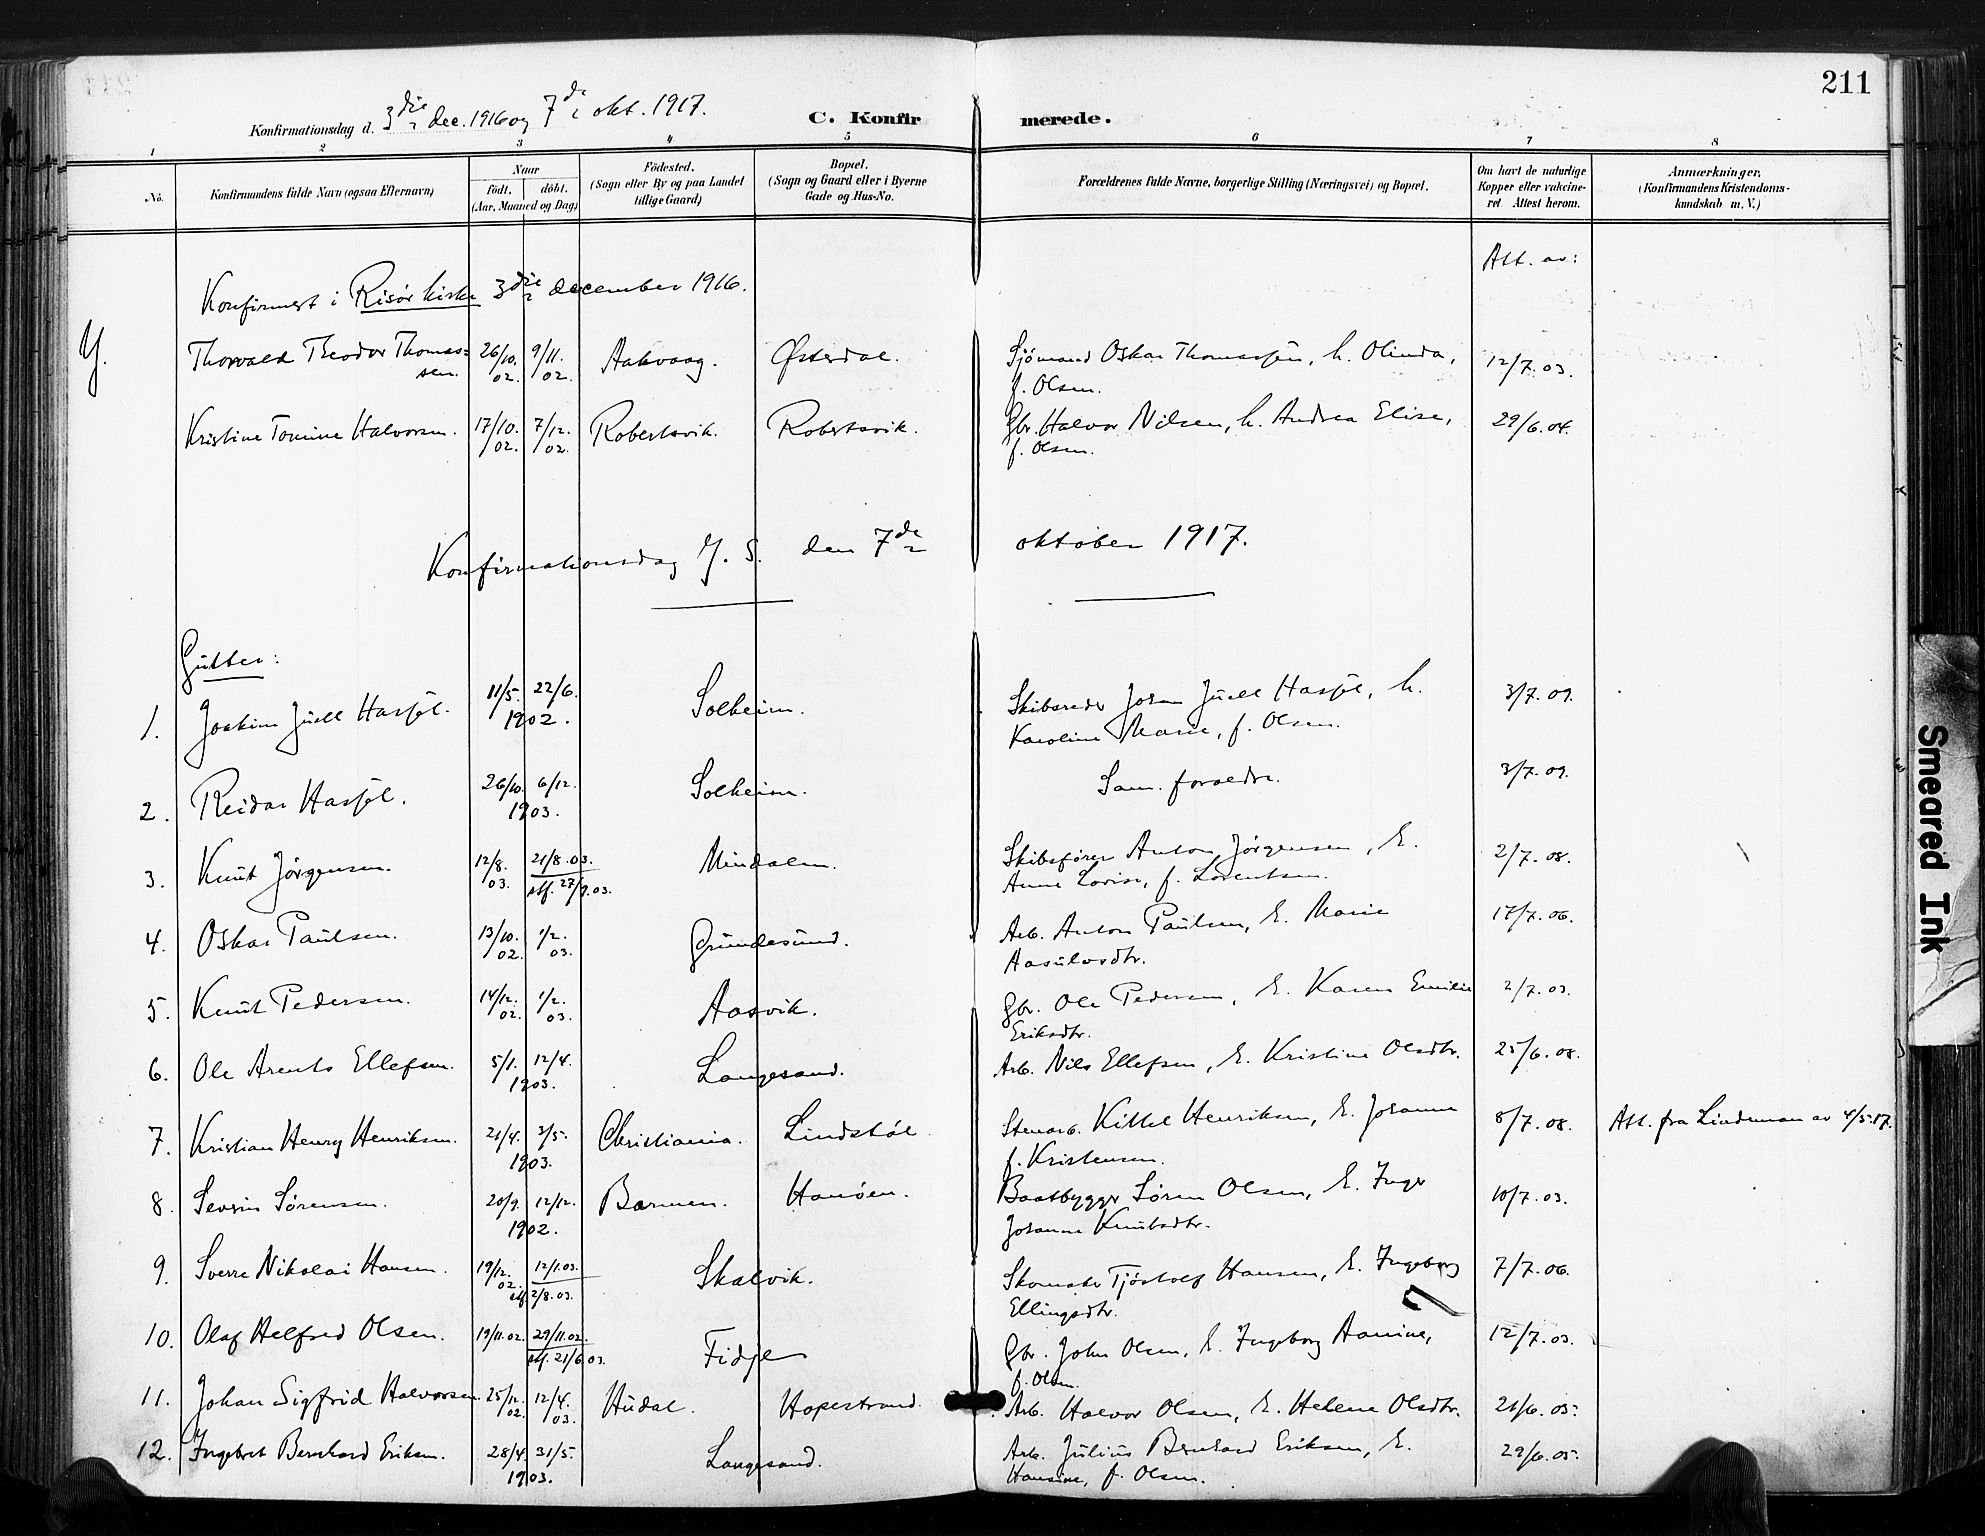 211
Konfirmationsdag d. 3die dec. 1916 og 7de okt. 1917.
C. Konfirmerede.
1 2 3 4 5 6 7 8
No.
Konfirmandens fulde Navn (ogsaa Efternavn)
Naar
födt. döbt.
(Aar, Maaned og Dag)
Födested.
(Sogn eller By og paa Landet
tillige Gaard)
Bopæl.
(Sogn og Gaard eller i Byerne
Gade og Hus-No.
Forældrenes fulde Navne, borgerlige Stilling (Næringsvei) og Bopæl.
Om havt de naturlige
Kopper eller vakcine-
ret Attest herom.
Anmærkninger,
(Konfirmandens Kristendoms-
kundskab m. V.)
Att. av:
Konfirmert i Risör kirke 3die december 1916.
Thorvald Theodor Thomas- 26/10. 9/11. Aakvaag. Østerdal. Sjömand Oskar Thomassen, h. Olinda, 12/7.03.
sen. 02. 02. f. Olsen.
Kristine Tomine Halvorsen. 17/10. 7/12. Robertsvik. Robertsvik. Gbr. Halvor Nilsen, h. Andrea Elise, 29/6.04.
02. 02. f. Olsen.
Konfirmationsdag S. den 7de oktober 1917.
Gutter:
1. Joakim Juell 11/5. 22/6. Solheim. Skibsreder Johan Juell h. 3/7.09.
1902. Karoline Marie, f. Olsen.
2. Reidar 26/10. 6/12. Solheim. Sam. forældre. 3/7.09.
1903.
3. Knut Jörgensen. 12/8. 21/8.03. Mindalen. Skibsförer Anton Jörgensen, E. 2/7.08.
03. stf. 27/9.03. Anne Lovise, f. Lorentsen.
4. Oskar Paulsen. 13/10. 1/2. Grundesund. Arb. Anton Paulsen, E. Marie 17/7.06.
02. 03. Aasulvsdtr.
5. Knut Pedersen. 14/12. 1/2. Aasvik. Gbr. Ole Pedersen, E. Karen Emilie 2/7.03.
02. 03. Eriksdtr.
6. Ole Arents Ellefsen. 5/1. 12/4. Langesand. Arb. Nils Ellefsen, E. Kristine Olsdtr. 25/6.08.
1903.
7. Kristian Henry Henriksen. 21/4. 3/5. Christiania. Lindstöl. Stenarb. Kittel Henriksen, E. Johanne 8/7.08. Att. fra Lindeman av 4/5.17.
1903. f. Kristensen.
8. Severin Sörensen. 20/9. 12/12. Barmen. Hanöen. Baatbygger Sören Olsen, E. Inger 10/7.03.
1902. Johanne Knutsdtr.
9. Sverre Nikolai Hansen. 19/12. 12/1.03. Skalvik. Skomaker Tjöstolf Hansen, E. Ingeborg 7/7.06.
02. stf. 2/8.03. Ellingsdtr.
10. Olaf Helfred Olsen. 19/11.02. 29/11.02. Fidje Gbr. John Olsen, E. Ingeborg Aamine, 12/7.03.
stf. 21/6.03. f. Olsen.
11. Johan Sigfrid Halvorsen. 25/12. 12/4. Hudal. Hopestrand. Arb. Halvor Olsen, E. Helene Olsdtr. 21/6.05.
02. 03.
12. Ingebret Bernhard Eriksen. 28/4. 31/5. Langesand. Arb. Julius Bernhard Eriksen, E. 29/6.05.
1903. Hansine, f. Olsen.
Smeared Ink